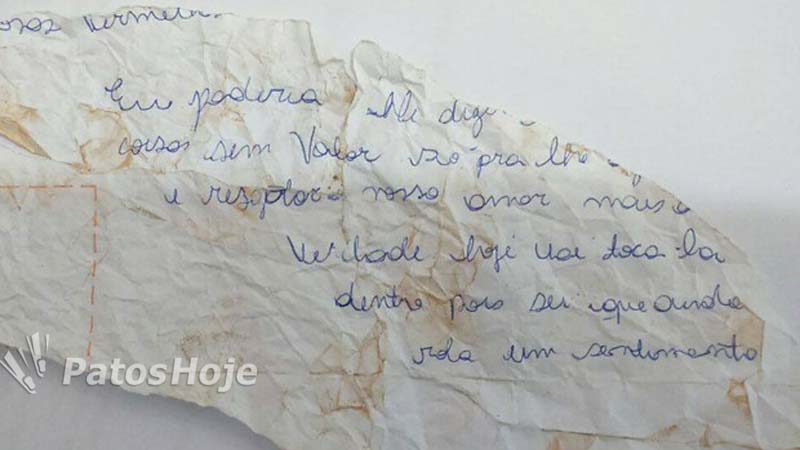 Eu poderia lhe dize
coisas sem Valor só pra lhe
e resgatar o nosso amor mais
Verdade hoje vai toca la
dentro pois sei que ainda
um sentimento
PatosHoje